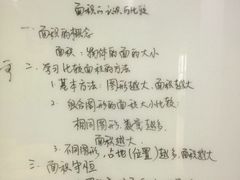 面积的认识与比较
一、面积的概念
面积：物体的面的大小
二、学习比较面积的方法
1、基本方法：图形越大，面积越大
2、组合图形的面积大小比较：
相同图形，数量越多，
面积越大
3、不同图形，占地(位置)越多，面积越大
三、面积守恒